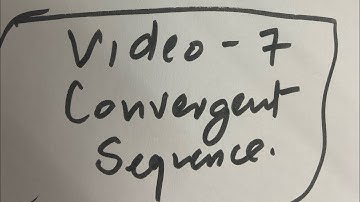 Video - 7
Convergent
Sequence.